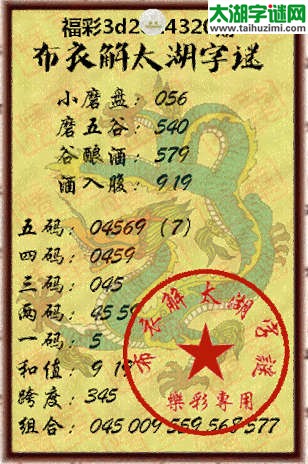 太湖字谜
www.taihuzimi.com
福彩3d2014320期
布衣解太湖字谜
小磨盘：056
磨五谷：540
谷酿酒：579
酒入腹：919
五码：04569（7）
四码：0459
三码：045
两码：45 59
一码：5
和值：9 19
跨度：345
组合：045 009 559 568 577
布衣解太湖字谜
樂彩专用